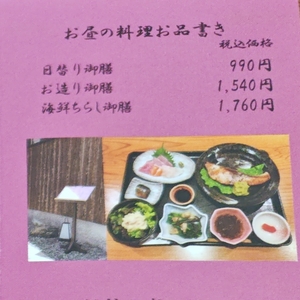 お昼の料理お品書き
税込価格
日替り御膳 990円
お造り御膳 1,540円
海鮮ちらし御膳 1,760円